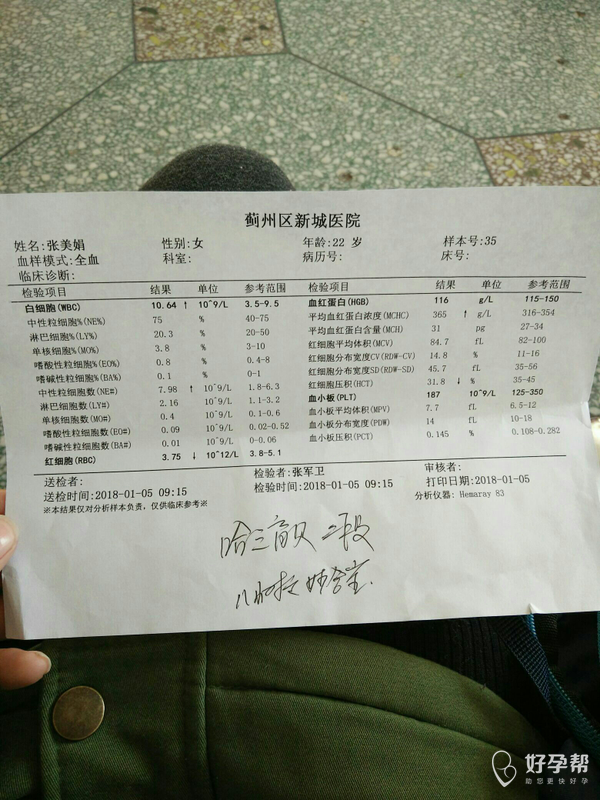 蓟州区新城医院
姓名:张美娟 性别:女 年龄:22 岁 样本号:35
血样模式:全血 科室: 病历号: 床号:
临床诊断:
检验项目 结果 单位 参考范围 检验项目 结果 单位 参考范围
白细胞(WBC) 10.64 ↑ 10^9/L 3.5-9.5 血红蛋白(HGB) 116 g/L 115-150
中性粒细胞%(NE%) 75 % 40-75 平均血红蛋白浓度(MCHC) 365 ↑ g/L 316-354
淋巴细胞%(LY%) 20.3 % 20-50 平均血红蛋白含量(MCH) 31 pg 27-34
单核细胞%(MO%) 3.8 % 3-10 红细胞平均体积(MCV) 84.7 fL 82-100
嗜酸性粒细胞%(EO%) 0.8 % 0.4-8 红细胞分布宽度CV(RDW-CV) 14.8 % 11-16
嗜碱性粒细胞%(BA%) 0.1 % 0-1 红细胞分布宽度SD(RDW-SD) 45.7 fL 35-56
中性粒细胞数(NE#) 7.98 ↑ 10^9/L 1.8-6.3 红细胞压积(HCT) 31.8 ↓ % 35-45
淋巴细胞数(LY#) 2.16 10^9/L 1.1-3.2 血小板(PLT) 187 10^9/L 125-350
单核细胞数(MO#) 0.4 10^9/L 0.1-0.6 血小板平均体积(MPV) 7.7 fL 6.5-12
嗜酸性粒细胞数(EO#) 0.09 10^9/L 0.02-0.52 血小板分布宽度(PDW) 14 fL 10-18
嗜碱性粒细胞数(BA#) 0.01 10^9/L 0-0.06 血小板压积(PCT) 0.145 % 0.108-0.282
红细胞(RBC) 3.75 ↓ 10^12/L 3.8-5.1
送检者: 检验者:张军卫 审核者:
送检时间:2018-01-05 09:15 检验时间:2018-01-05 09:15 打印日期:2018-01-05
※本结果仅对分析样本负责,仅供临床参考※ 分析仪器: Hemaray 83
哈三育贝 二段
好孕帮
助您更快好孕